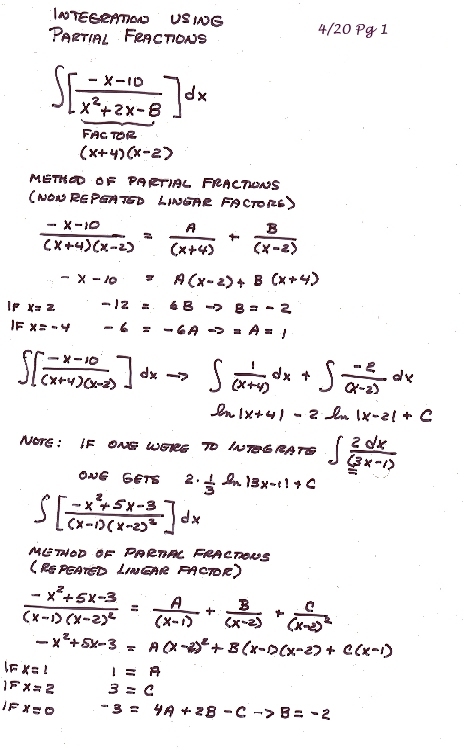 INTEGRATION USING
PARTIAL FRACTIONS
4/20 Pg 1
∫[(-x-10)/(x²+2x-8)]dx
FACTOR
(x+4)(x-2)
METHOD OF PARTIAL FRACTIONS
(NON REPEATED LINEAR FACTORS)
(-x-10)/((x+4)(x-2)) = A/(x+4) + B/(x-2)
-x-10 = A(x-2)+B(x+4)
IF x=2 -12 = 6B -> B=-2
IF x=-4 -6 = -6A -> = A=1
∫[(-x-10)/((x+4)(x-2))]dx -> ∫ 1/(x+4) dx + ∫ -2/(x-2) dx
ln|x+4| - 2 ln|x-2| + C
NOTE: IF ONE WERE TO INTEGRATE ∫ 2dx/(3x-1)
ONE GETS 2·1/3 ln|3x-1|+C
∫[(-x²+5x-3)/((x-1)(x-2)²)]dx
METHOD OF PARTIAL FRACTIONS
(REPEATED LINEAR FACTOR)
(-x²+5x-3)/((x-1)(x-2)²) = A/(x-1) + B/(x-2) + C/(x-2)²
-x²+5x-3 = A(x-2)²+B(x-1)(x-2)+C(x-1)
IF x=1 1 = A
IF x=2 3 = C
IF x=0 -3 = 4A+2B-C -> B=-2